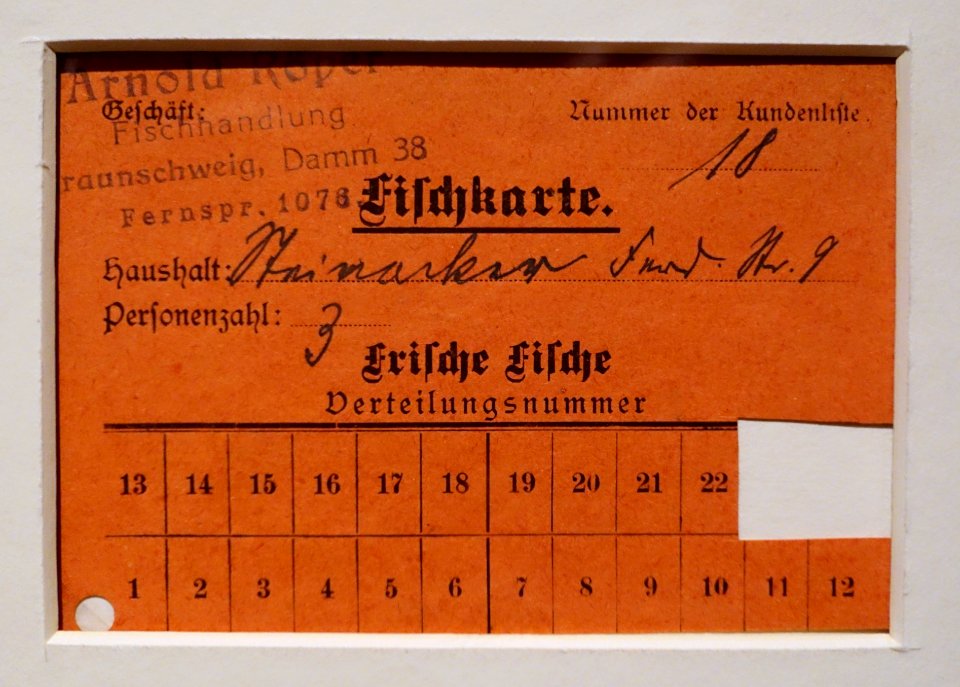 Arnold Röper
Geschäft:
Fischhandlung
raunschweig, Damm 38
Fernspr. 1076
Nummer der Kundenliste
18
Fischkarte.
Haushalt: Steinacker Ferd. Str. 9
Personenzahl: 3
Frische Fische
Verteilungsnummer
13 14 15 16 17 18 19 20 21 22
1 2 3 4 5 6 7 8 9 10 11 12